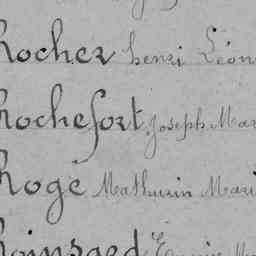 Rocher Henri Léon
Rochefort Joseph Mar
Rogé Mathurin Mari
Roinsard